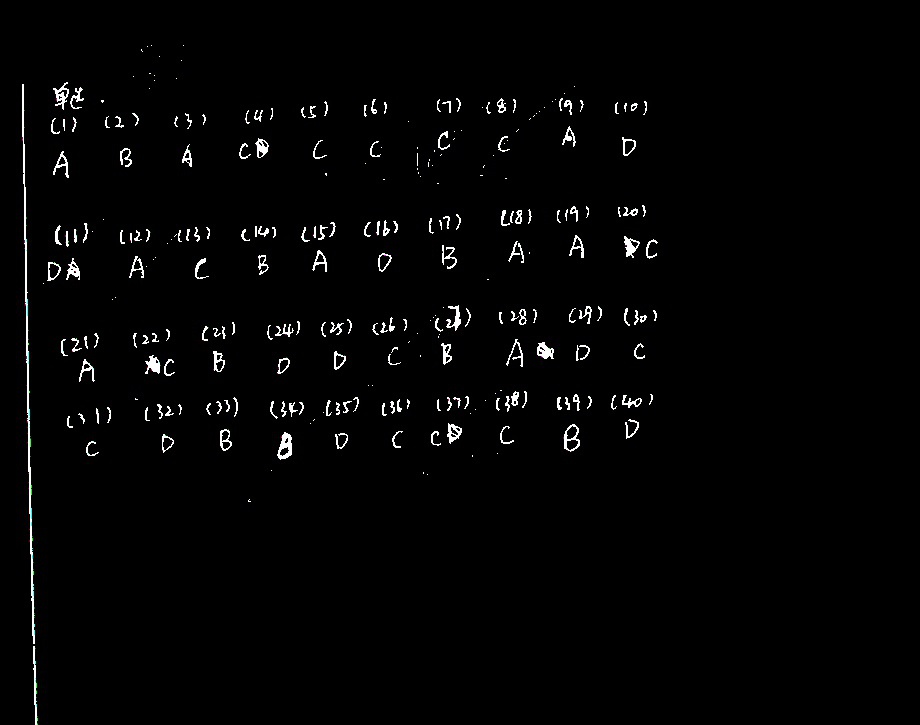 单选.
(1) (2) (3) (4) (5) (6) (7) (8) (9) (10)
A B A C C C C C A D
(11) (12) (13) (14) (15) (16) (17) (18) (19) (20)
D A C B A D B A A C
(21) (22) (23) (24) (25) (26) (27) (28) (29) (30)
A C B D D C B A D C
(31) (32) (33) (34) (35) (36) (37) (38) (39) (40)
C D B B D C C C B D